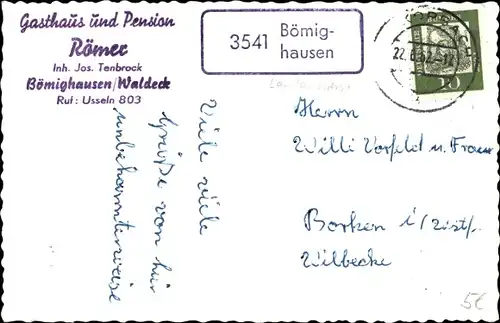 Gasthaus und Pension
Römer
Inh. Jos. Tenbrock
Bömighausen/Waldeck
Ruf: Usseln 803
3541 Bömig-
hausen
10
Viele viele
Grüße von hier
unbekannterweise
Herrn
Willi Vorfeld u. Frau
Borken i/Westf.
Wilbecke
5€